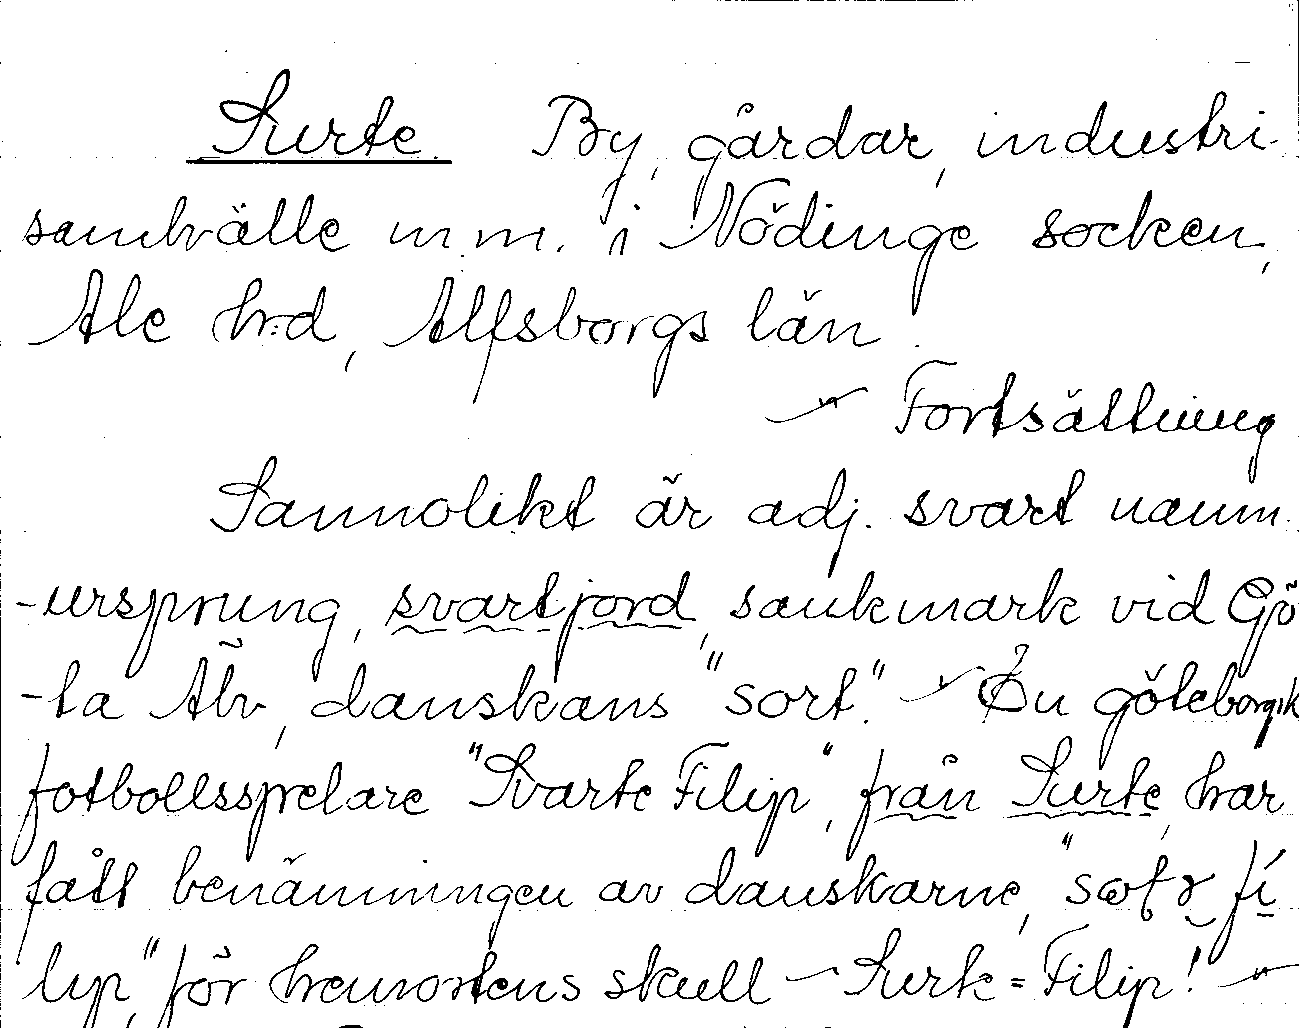 Surte By, gårdar, industri-
samhälle m.m. i Nödinge socken,
Ale h:d, Älfsborgs län.
~ Fortsättning
Sannolikt är adj. svart namn-
-ursprung, svartjord, sankmark vid Gö-
-ta Älv, danskans "sort". ~ En göteborgsk
fotbollsspelare "Svarte Filip", från Surte, har
fått benämningen av danskarne, "
lip", för hemortens skull ~ Surte-Filip! ~